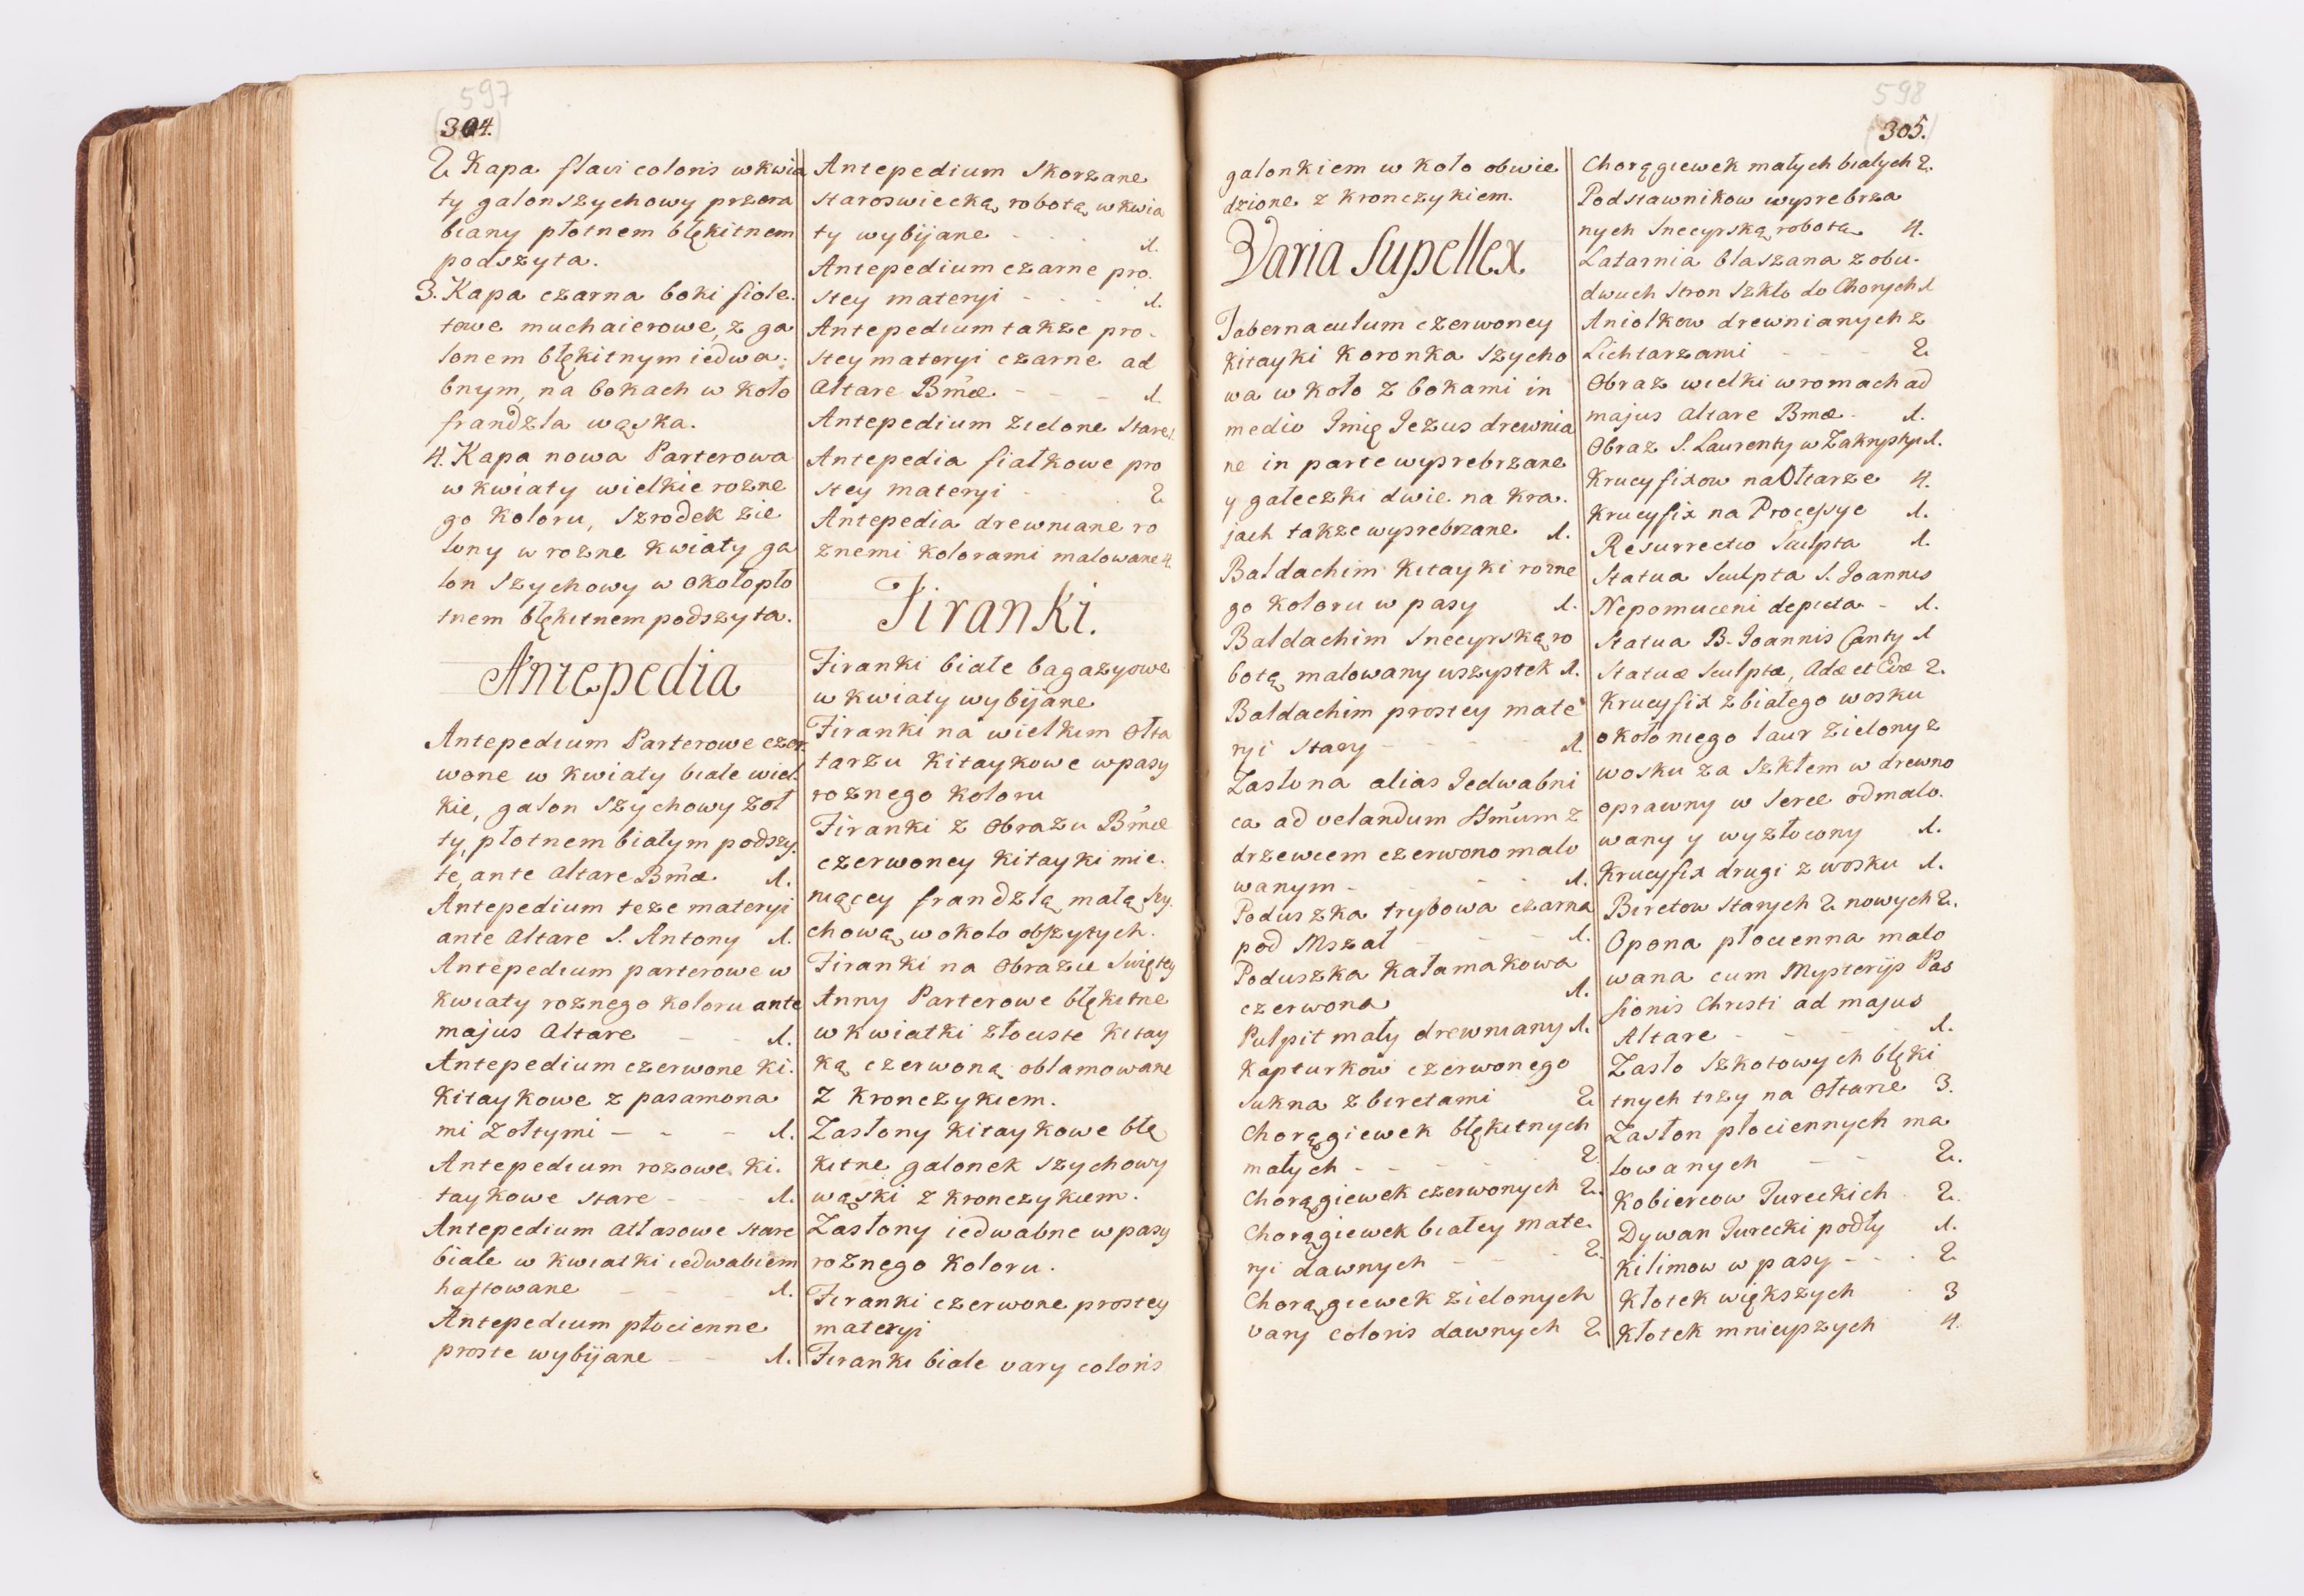 597
304.
2. Kapa flavi coloris w kwia
ty galon szychowy przera
biany płotnem błękitnem
podszyta.
3. Kapa czarna boki fiole.
towe muchaierowe, z ga
lonem błękitnym iedwa.
bnym, na bokach w koło
frandzla wąska.
4. Kapa nowa Parterowa
w kwiaty wielkie rozne
go koloru, szrodek zie
lony w rozne kwiaty ga
lon szychowy w okołopło
tnem błękitnem podszyta.
Antepedia
Antepedium Parterowe czer
wone w kwiaty białe wiel
kie, galon szychowy żoł
ty, płotnem białym podszy.
te, ante Altare Bmæ 1.
Antepedium teze materyi
ante Altare S. Antony 1.
Antepedium parterowe w
kwiaty roznego koloru ante
majus Altare - - 1.
Antepedium czerwone ki.
kitaykowe z pasamona
mi żołtymi - - - 1.
Antepedium rozowe ki.
taykowe stare - - 1.
Antepedium atłasowe stare
białe w kwiatki iedwabiem
haftowane - - - 1.
Antepedium płocienne
proste wybijane - - 1.
Antepedium skorzane
staroswiecką robotą w kwia
ty wybijane - - - 1.
Antepedium czarne pro.
stey materyi - - - 1.
Antepedium także pro.
stey materyi czarne ad
Altare Bmæ - - - 1.
Antepedium zielone stare 1.
Antepedia fiałkowe pro
stey materyi - 2
Antepedia drewniane ro
znemi kolorami malowane 4.
Firanki.
Firanki białe bagazyowe
w kwiaty wybijane
Firanki na wielkim Ołta
tarzu kitaykowe w pasy
roznego koloru
Firanki z Obrazu Bmæ
czerwoney kitayki mie.
niącey frandzlą małą szy.
chową w okolo obszytych.
Firanki na Obrazie Swiętey
Anny Parterowe błękitne
w kwiatki złociste kitay
ką czerwoną oblamowane
z kronczykiem.
Zasłony kitaykowe błę
kitne galonek szychowy
wąski z kronczykiem.
Zasłony iedwabne w pasy
rożnego koloru.
Firanki czerwone prostey
materyi
Firanki białe vary coloris
598
305.
galonkiem w koło obwie
dzione z kronczykiem.
Varia Supellex
Tabernaculum czerwoney
kitayki koronka szycho
wa w koło z bokami in
medio Imię Jezus drewnia
ne in parte wysrebrzane
y gałeczki dwie na kra.
jach takze wysrebrzane 1.
Baldachim kitayki rozne
go koloru w pasy 1.
Baldachim Snecyrską ro
botą malowany wszystek 1.
Baldachim prostey mate
ryi stary - - - - 1.
Zasłona alias Jedwabni
ca ad velandum Ssmum z
drzewcem czerwono malo
wanym - - - - 1.
Poduszka trybowa czarna
pod Mszał - - - 1.
Poduszka kałamakowa
czerwona 1.
Pulpit mały drewniany 1.
Kapturkow czerwonego
sukna z biretami 2
Chorągiewek błękitnych
małych - - - - - 2.
Chorągiewek czerwonych 2.
Chorągiewek białey mate.
ryi dawnych - - - 2.
Chorągiewek zielonych
vary coloris dawnych 2
Chorągiewek małych białych 2.
Podstawnikow wysrebrza
nych Snecyrską robotą 4.
Latarnia blaszana z obu.
dwuch stron szkło do Chorych 1
Aniołkow drewnianych z
Lichtarzami - - - 2.
Obraz wielki w romach ad
majus Altare Bmæ - 1.
Obraz S. Laurenty w Zakrystyi 1.
Krucyfixow na Ołtarze 4.
Krucyfix na Processye 1.
Resurrectio Sculpta 1.
Statua Sculpta S. Joannis
Nepomuceni depicta - 1.
Statua B. Joannis Canty 1
Statuæ Sculptæ, Adæ et Evæ 2.
Krucyfix z białego wosku
około niego laur zielony z
wosku za szkłem w drewno
oprawny w serce odmalo.
wany y wyzłocony 1.
Krucyfix drugi z wosku 1.
Biretow starych 2. nowych 2.
Opona płocienna malo
wana cum Mysterijs Pas
sionis Christi ad majus
Altare - - - - 1.
Zasło szkotowych błęki
tnych trzy na Ołtarze 3.
Zasłon płociennych ma
lowanych - - 2.
Kobiercow Tureckich 2.
Dywan Turecki podły 1.
Kilimow w pasy - - - 2
Kłotek większych 3
Kłotek mnieyszych 4.